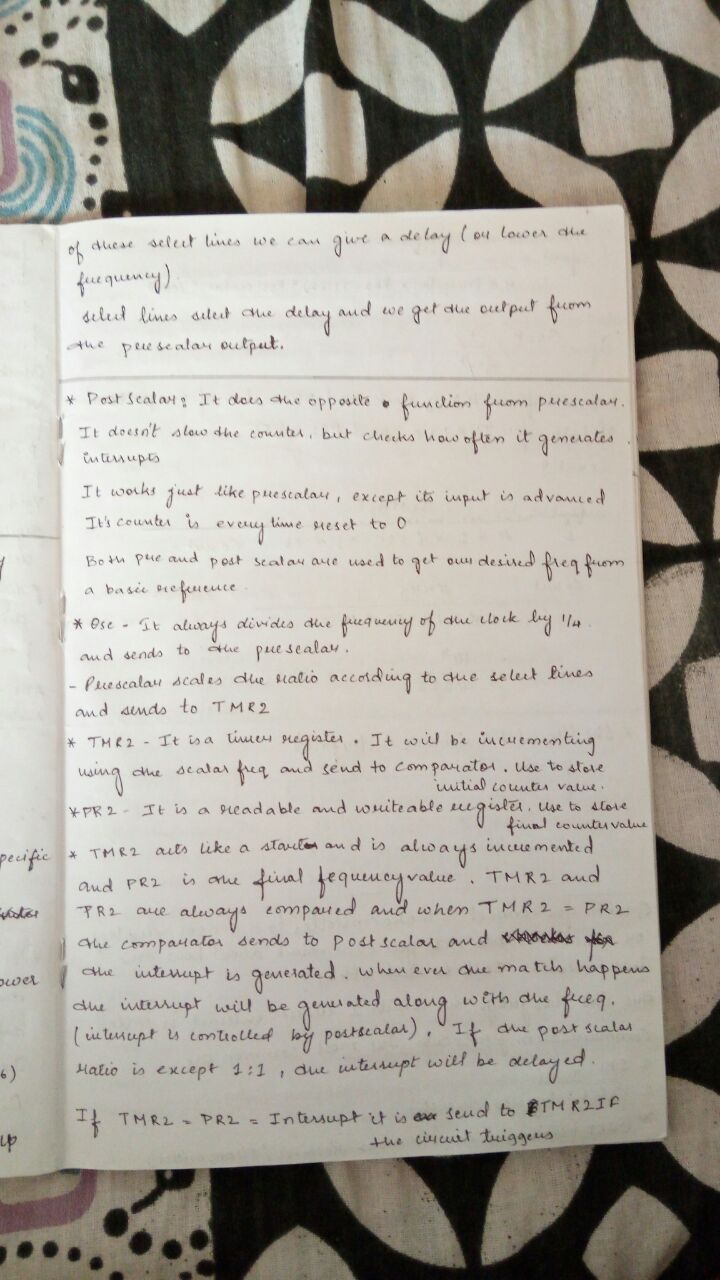 of these select lines we can give a delay (or lower the
frequency)
select lines select the delay and we get the output from
the prescalar output.
* Post Scalar: It does the opposite function from prescalar.
It doesn't slow the counter, but checks how often it generates
interrupts
It works just like prescalar, except its input is advanced
It's counter is every time reset to 0
Both pre and post scalar are used to get our desired freq from
a basic reference.
* Osc - It always divides the frequency of the clock by 1/4.
and sends to the prescalar.
- Prescalar scales the ratio according to the select lines
and sends to TMR2
* TMR2 - It is a timer register. It will be incrementing
using the scalar freq and send to comparator. Use to store
initial counter value.
* PR2 - It is a readable and writeable register. Use to store
final counter value
* TMR2 acts like a start and is always incremented
and PR2 is the final fequency value. TMR2 and
PR2 are always compared and when TMR2 = PR2
the comparator sends to Post scalar and
the interrupt is generated. When ever the match happens
the interrupt will be generated along with the freq.
(interrupt is controlled by postscalar). If the post scalar
ratio is except 1:1, the interrupt will be delayed.
If TMR2 = PR2 = Interrupt it is send to TMR2IF
the circuit triggers
pecific
ower
6)
up